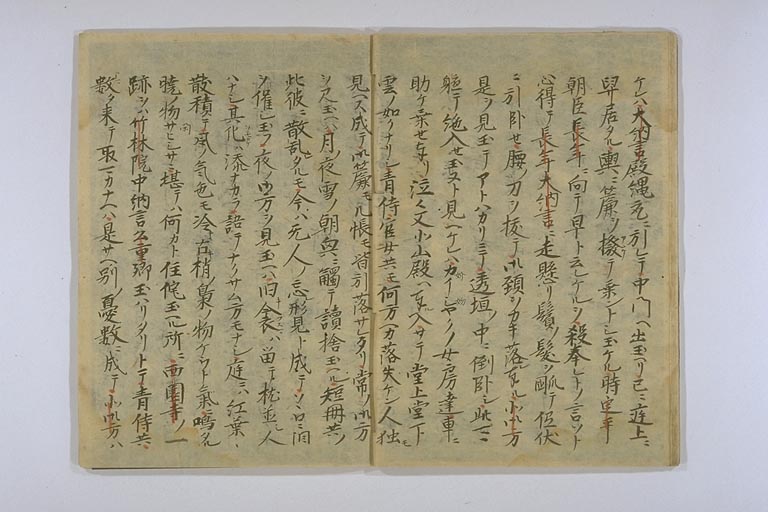 ケレハ大納言殿縄ニ引レテ中門ヘ出玉ヘリ已ニ庭上ニ
舁居タル輿ニ簾ヲ撥テ乗ントシ玉ケル時定平
朝臣長年ニ向テ早ト云レケルヲ殺奉レトノ言ソト
心得テ長年大納言ニ走懸リ鬢ノ髪ヲ爴テ伏
ニ引臥セ腰ノ刀ヲ抜テ御頚ヲカキ落奉ル北御方
是ヲ見玉テアトハカリニテ透垣ノ中ニ倒臥シ此ニ
軈テ絶入玉ヌト見ヘケレハカイシヤクノ女房達車ニ
助ケ乗セ奉リ泣々又北山殿ヘ入奉サテ堂上堂下
雲ノ如クナリシ青侍官女共モ何方ヘカ落失ケン人独モ
見ヘス成テ御簾モ几帳モ皆引落サレタリ常ノ御方
ヲ見玉ヘハ月ノ夜雪ノ朝興ニ觸テ讀捨玉ヘル短冊共ノ
此彼ニ散乱タルモ今ハ无人ノ忘形見ト成テソヽロニ泪
ヲ催シ玉フ夜ノ御方ヲ見玉ヘハ旧衾ハ留テ枕並シ人
ハナシ其化ハ添ナカラ語テナクサム方モナシ庭ニハ紅葉
散積テ風ノ気色モ冷ク古梢ノ梟ノ物ケウトケニ鳴タル
暁ノ物サヒシサニ堪テハ何カト住侘玉ヘル所ニ西園寺ノ一
跡ヲハ竹林院中納言公重卿玉ハリタリトテ青侍共
数多来テ取マカナヘハ是サヘ別ノ憂数ニ成テ北御方ハ